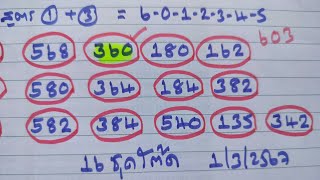 สูตร ① + ③ = 6-0-1-2-3-4-5
568 360 180 162 603
580 364 184 382
582 384 540 135 342
16 ชุดโต๊ด 1/3/2567